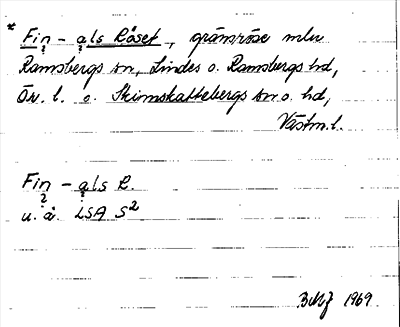 * Fin - als Råset, gränsröse mln
Ramsbergs sn, Lindes o. Ramsbergs hd,
Ör. l. o. Skinnskattebergs sn o. hd,
Västm. l.
Fin - als R.
? ?
u. å. LSA S²
1969